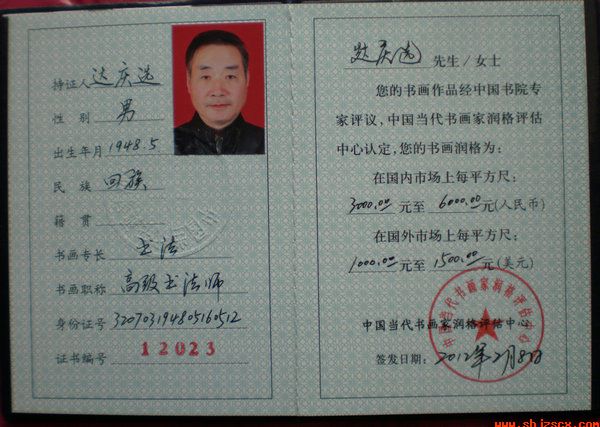 持证人 达庆选
性别 男
出生年月 1948.5
民族 回族
籍贯
书画专长 书法
书画职称 高级书法师
身份证号 320703194805160512
证书编号 12023
达庆选 先生/女士
您的书画作品经中国书院专
家评议,中国当代书画家润格评估
中心认定,您的书画润格为:
在国内市场上每平方尺:
3000.00 元至 6000.00 元(人民币)
在国外市场上每平方尺:
1000.00 元至 1500.00 元(美元)
中国当代书画家润格评估中心
中国当代书画家润格评估中心
签发日期: 2012年2月8日
www.shjzscx.com